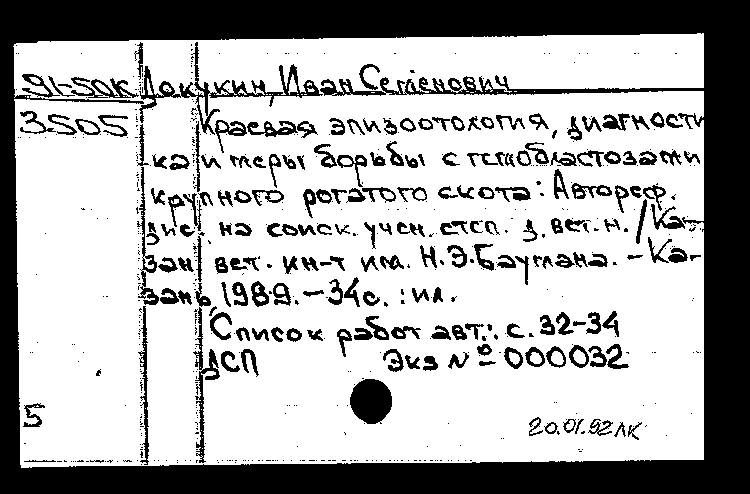 91-50К Докукин, Иван Семенович
3505 Краевая эпизоотология, диагности
ка и меры борьбы с гемобластозами
крупного рогатого скота: Автореф.
дис. на соиск. учен. степ. д. вет. н. / Ка-
зан. вет. ин-т им. Н.Э.Баумана. – Ка-
зань, 1989. – 34с. : ил.
Список работ авт.: с. 32-34
ДСП Экз № 000032
5
20.01.92 ЛК